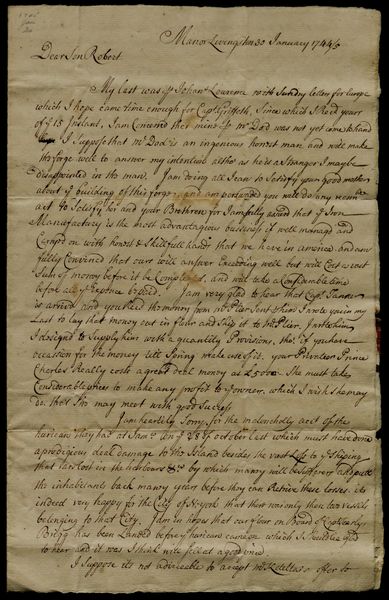 Manor Livingston 30 January 1744/5
Dear Son Robert
My last was p Johan. Lawrence with Sundry letters for Europe
which I hope came time enough for Capt. Griffeth, Since which I Recd your
of ye 15 Instant, I am Concernd that mine p mr. Dod was not yet come to hand
I Suppose that mr. Dad is an ingenious honest man and will make
the forge well to answer my intention altho as he is a Stranger I may be
disappointed in the man. I am doing all I can to Satisfy your good mother
about ye building of this forge, and am perswaded you will do any
act to Satisfy her and your Brethren for I am fully assured that ye Iron
Manufactury is the most advantagious business if well managed and
Carryd on with honest & Skillfull hands that we have in america and am
fully Convinced that ours will answer Exceeding well but will Cost a vast
Sum of money before it be Compleated, and will take a Considerable time
before all ye Expence is
I am very glad to hear that Capt.
is arrived and you Recd the money from I wrote you in my
Last to lay that money out in flour and Ship it to
I designed to Supply him with a quantity Provisions, tho. if you have
occasion for the money till Spring make use of it. your Privateer Prince
Charles Really costs a great deal money as £5000 She must take
Considerable prices to make any profit to ye owners, which I wish she may
do, that Tho may meet with good Success
I am heartily Sorry for the malencholly acct of the
huricane they had at Jam. on ye 28th of october last which must have done
a prodigious deal damage to this Island besides the vast Loss to ye Shiping
that was lost in the harbours &c by which many will be Sufferers and putt
the inhabitants back many years before they can Retrive these losses. its
indeed very happy for the City of N-york that there was only then two vessels
belonging to that City. I am in hopes that our flour on Board of
Brigg has been Landed before ye huricane came on which I Should be glad
to hear and it was I think will Sell at a good price.
I Suppose its not adviceable to accept offer to